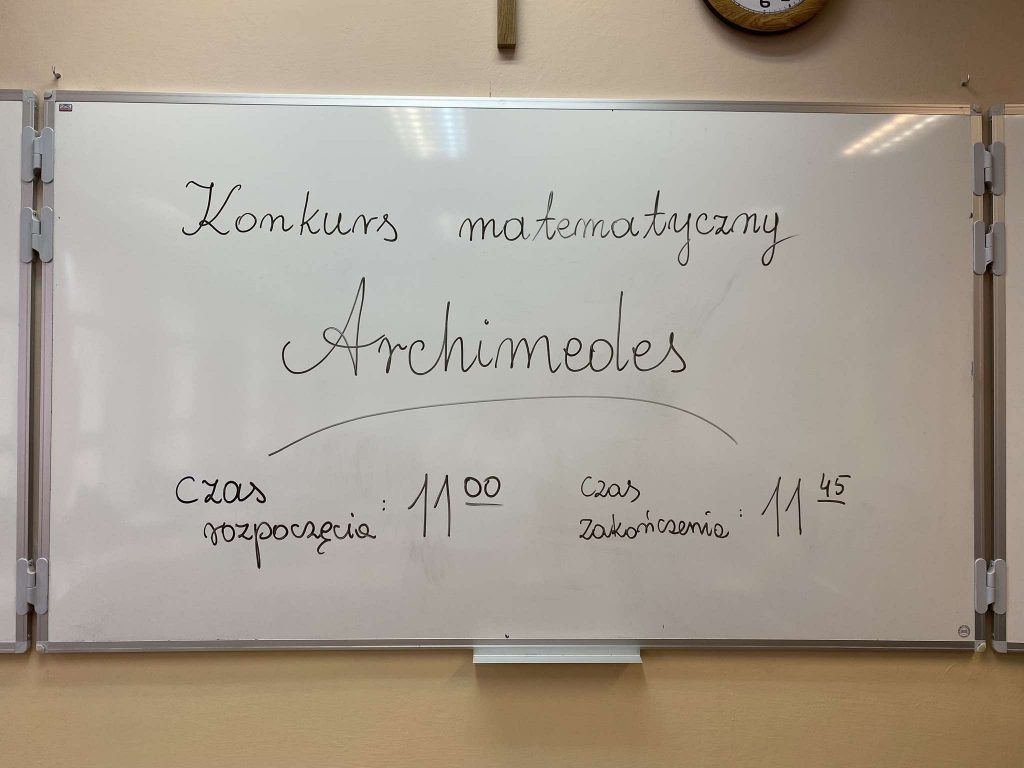 Konkurs matematyczny
Archimedes
Czas rozpoczęcia : 11 00
Czas zakończenia : 11 45
6